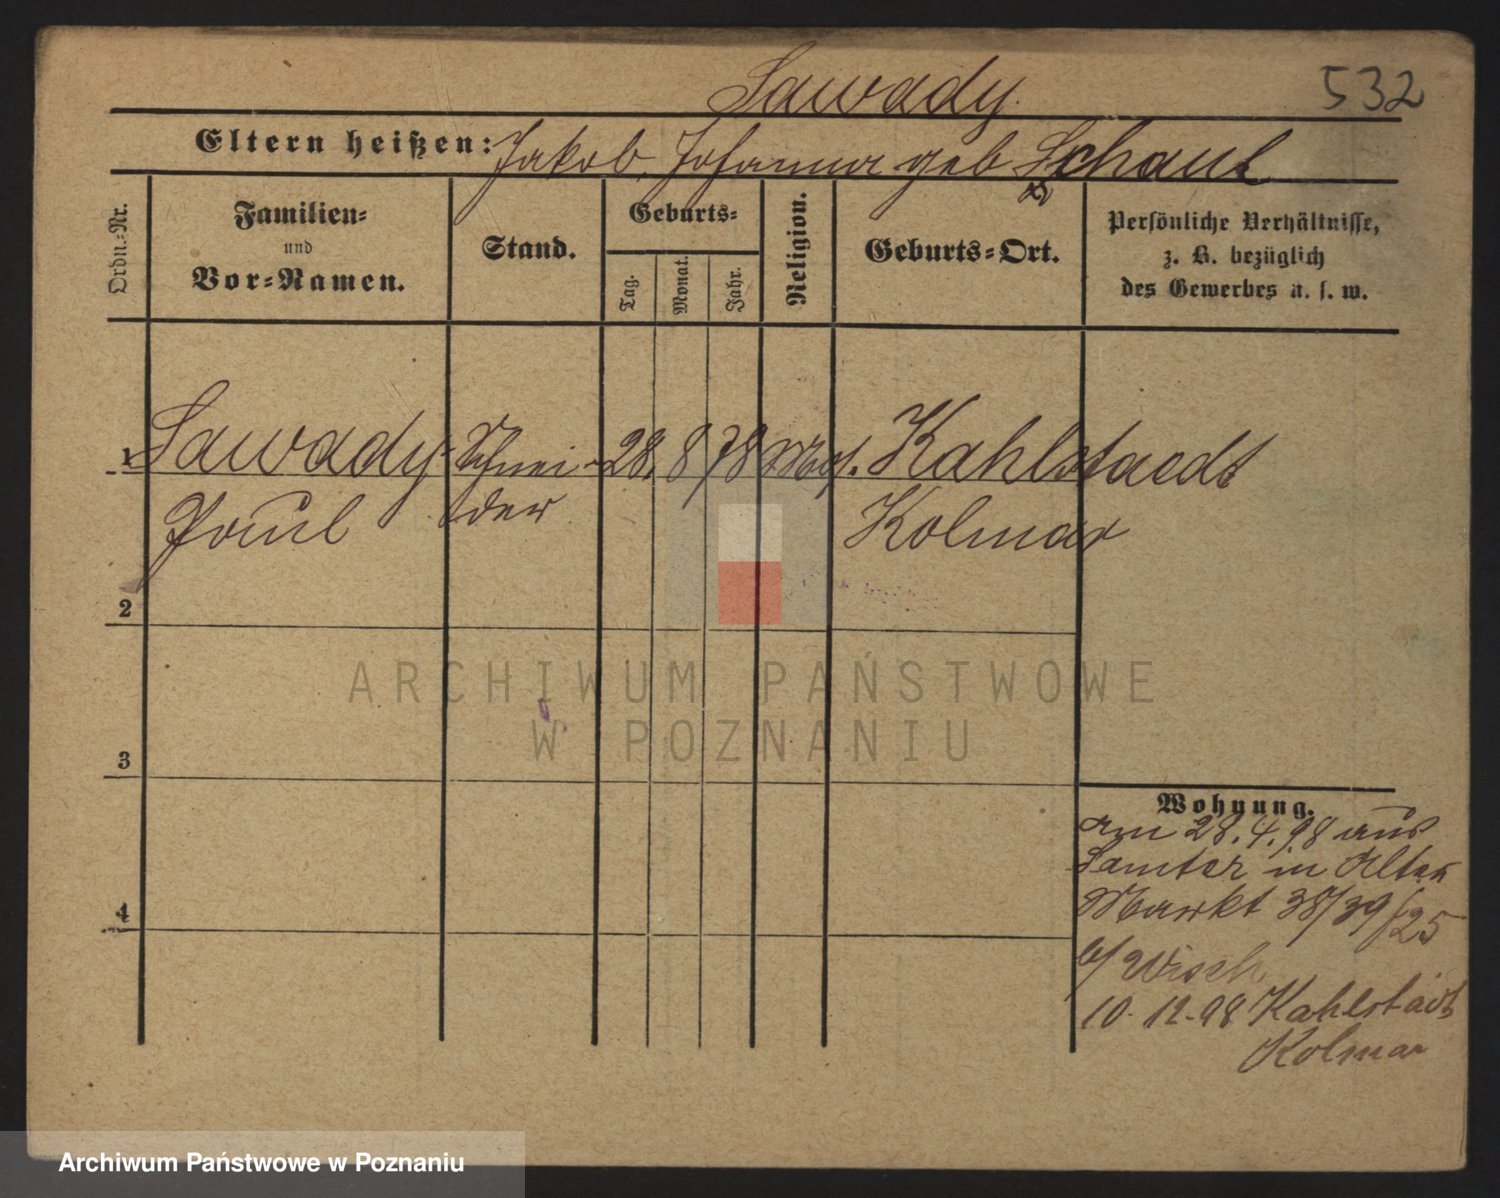 Sawady.
532
Eltern heißen: Jakob, Johanna geb Schaul
Ordn.-Nr.
Familien-
und
Vor-Namen.
Stand.
Geburts-
Tag.
Monat.
Jahr.
Religion.
Geburts-Ort.
Persönliche Verhältnisse,
z. B. bezüglich
des Gewerbes u. s. w.
1 Sawady Schnei- 28. 8 78 Mos. Kahlstaedt
Paul der Kolmar
2
3
4
ARCHIWUM PAŃSTWOWE
W POZNANIU
Wohnung.
am 28.4.98 aus
Samter in Alter
Markt 38/39/25
b/ Wisch
10.12.98 Kahlstädt
Kolmar
Archiwum Państwowe w Poznaniu